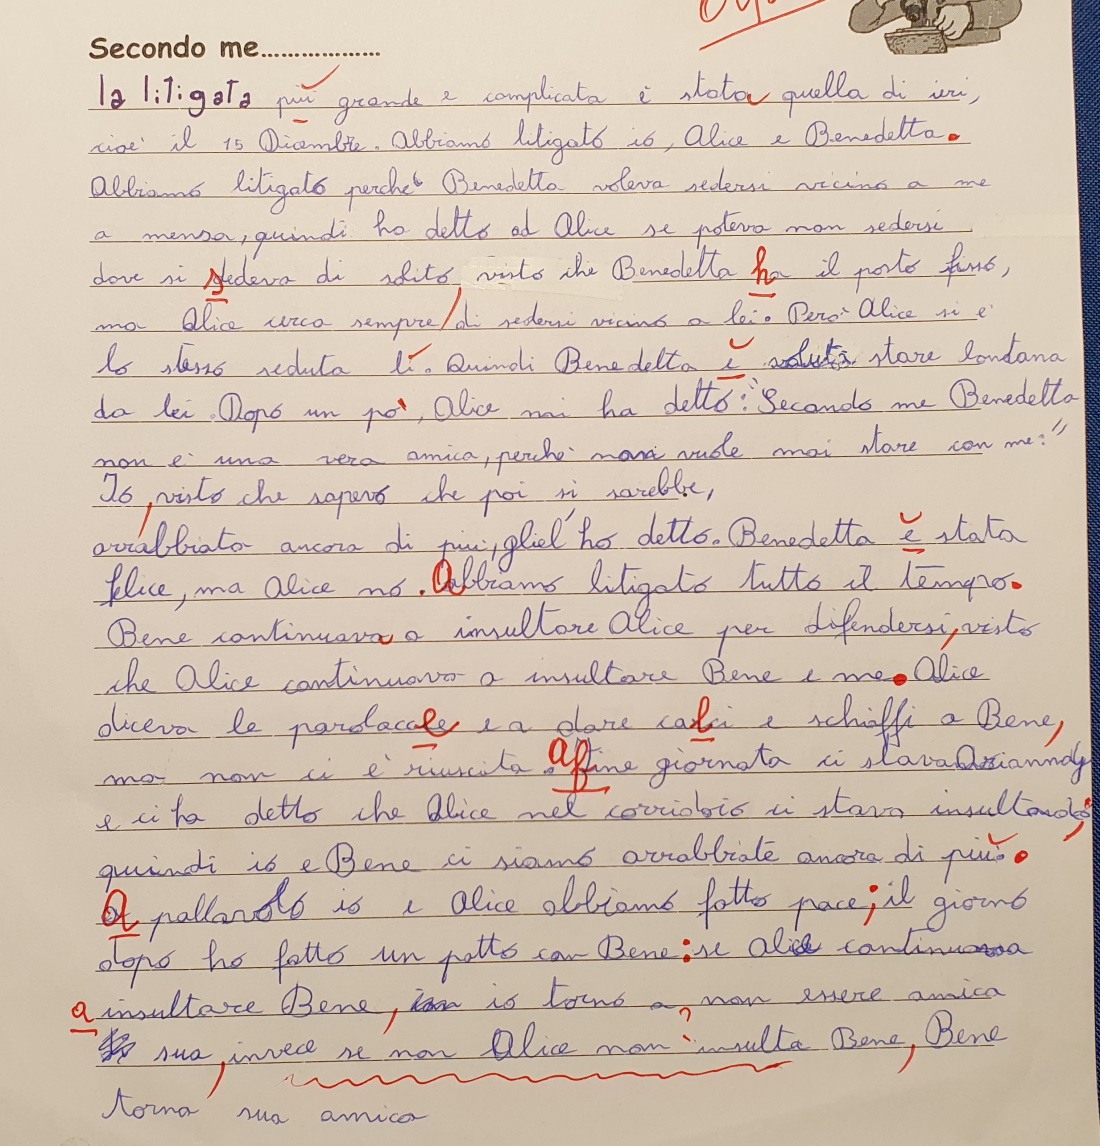 Secondo me..................
la litigata più grande e complicata è stata quella di ieri,
cioè il 15 Dicembre. Abbiamo litigato io, Alice e Benedetta.
Abbiamo litigato perchè Benedetta voleva sedersi vicino a me
a mensa, quindi ho detto ad Alice se poteva non sedersi
dove si sedeva di solito, visto che Benedetta ha il posto fisso,
ma Alice cerca sempre di sedersi vicino a lei. Però Alice si è
lo stesso seduta lì. Quindi Benedetta è voluta stare lontana
da lei. Dopo un po', Alice mi ha detto: "Secondo me Benedetta
non è una vera amica, perchè non vuole mai stare con me."
Io, visto che sapevo che poi si sarebbe,
arrabbiata ancora di più, gliel'ho detto. Benedetta è stata
felice, ma Alice no. Abbiamo litigato tutto il tempo.
Bene continuava a insultare Alice per difendersi, visto
che Alice continuava a insultare Bene e me. Alice
diceva le parolacce e a dare calci e schiaffi a Bene,
ma non ci è riuscita. A fine giornata ci stava Arianna
e ci ha detto che Alice nel corridoio ci stava insultando;
quindi io e Bene ci siamo arrabbiate ancora di più.
A pallavolo io e Alice abbiamo fatto pace; il giorno
dopo ho fatto un patto con Bene: se Alice continua
a insultare Bene, io torno a non essere amica
sua, invece se non Alice non insulta Bene, Bene
torna sua amica